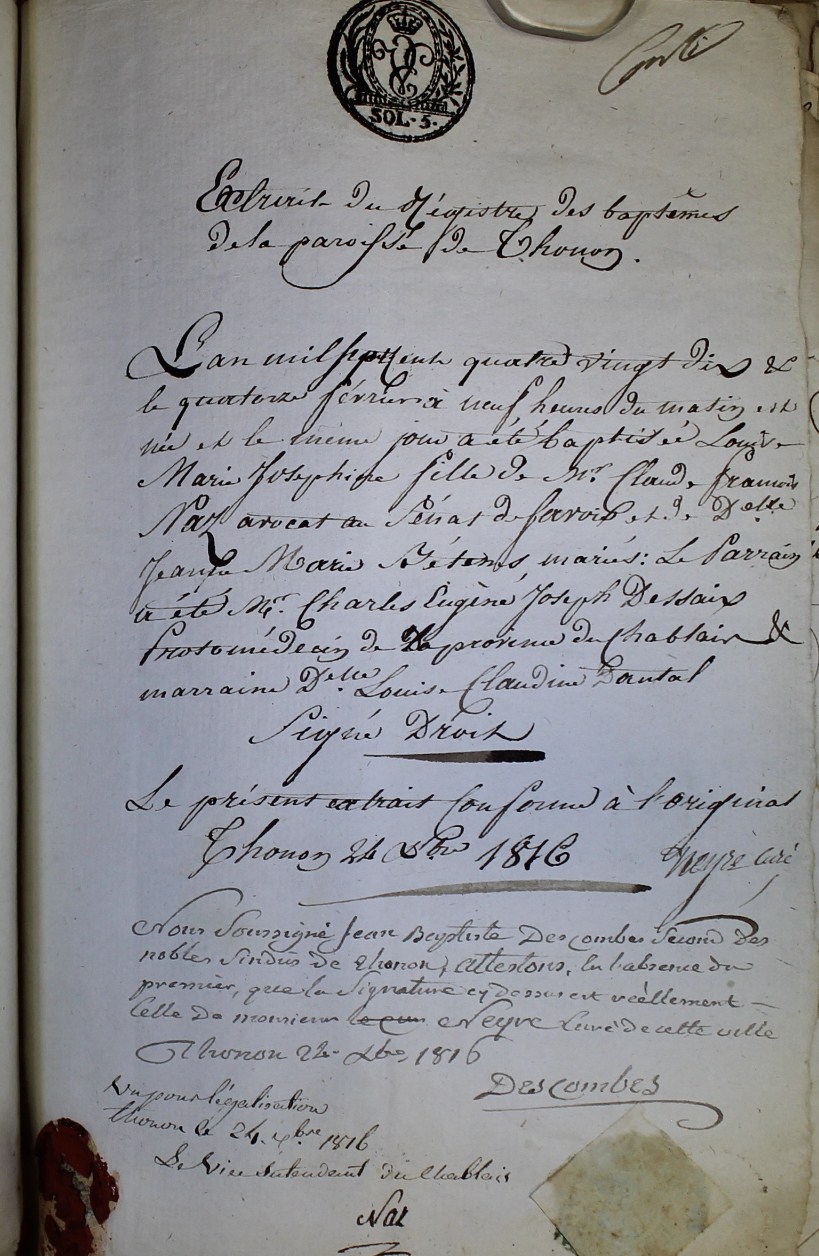 SOL. 5.
Extrait du Régistre des baptêmes
de la paroisse de Thonon.
L'an mil sept cent quatre vingt dix &
le quatorze février à neuf heures du matin est
née et le même jour a été baptisée Louise
Marie Josephine fille de Mr. Claude françois
Naz avocat au Sénat de Savoie et de Delle
Jeanne Marie Bétems mariés: Le Parrain
a été Mr. Charles Eugène Joseph Dessaix
Protomédecin de la province du Chablais &
marraine Delle Louise Claudine Dantal
Signé Droit
Le présent extrait Conforme à l'original
Thonon 24 Xbre 1816 Neyre curé
Nous Soussigné Jean Baptiste Descombes Second des
nobles Sindics de Thonon, attestons, en l'absence du
premier, que la Signature cy dessus est réellement
Celle de monsieur Neyre Curé de cette ville
Thonon 24 Xbre 1816
Descombes
Vu pour légalisation
Thonon le 24 Xbre 1816
Le Vice intendent du Chablais
Naz